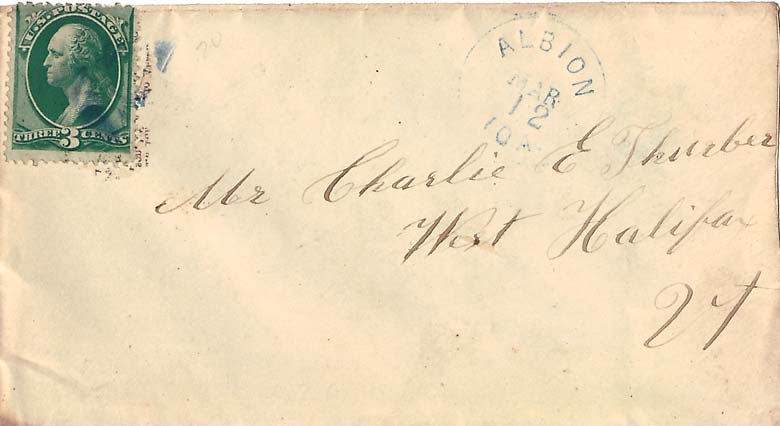 U.S. POSTAGE
THREE 3 CENTS
ALBION
MAR
12
IOA.
Mr Charlie E Thurber
West Halifax
Vt